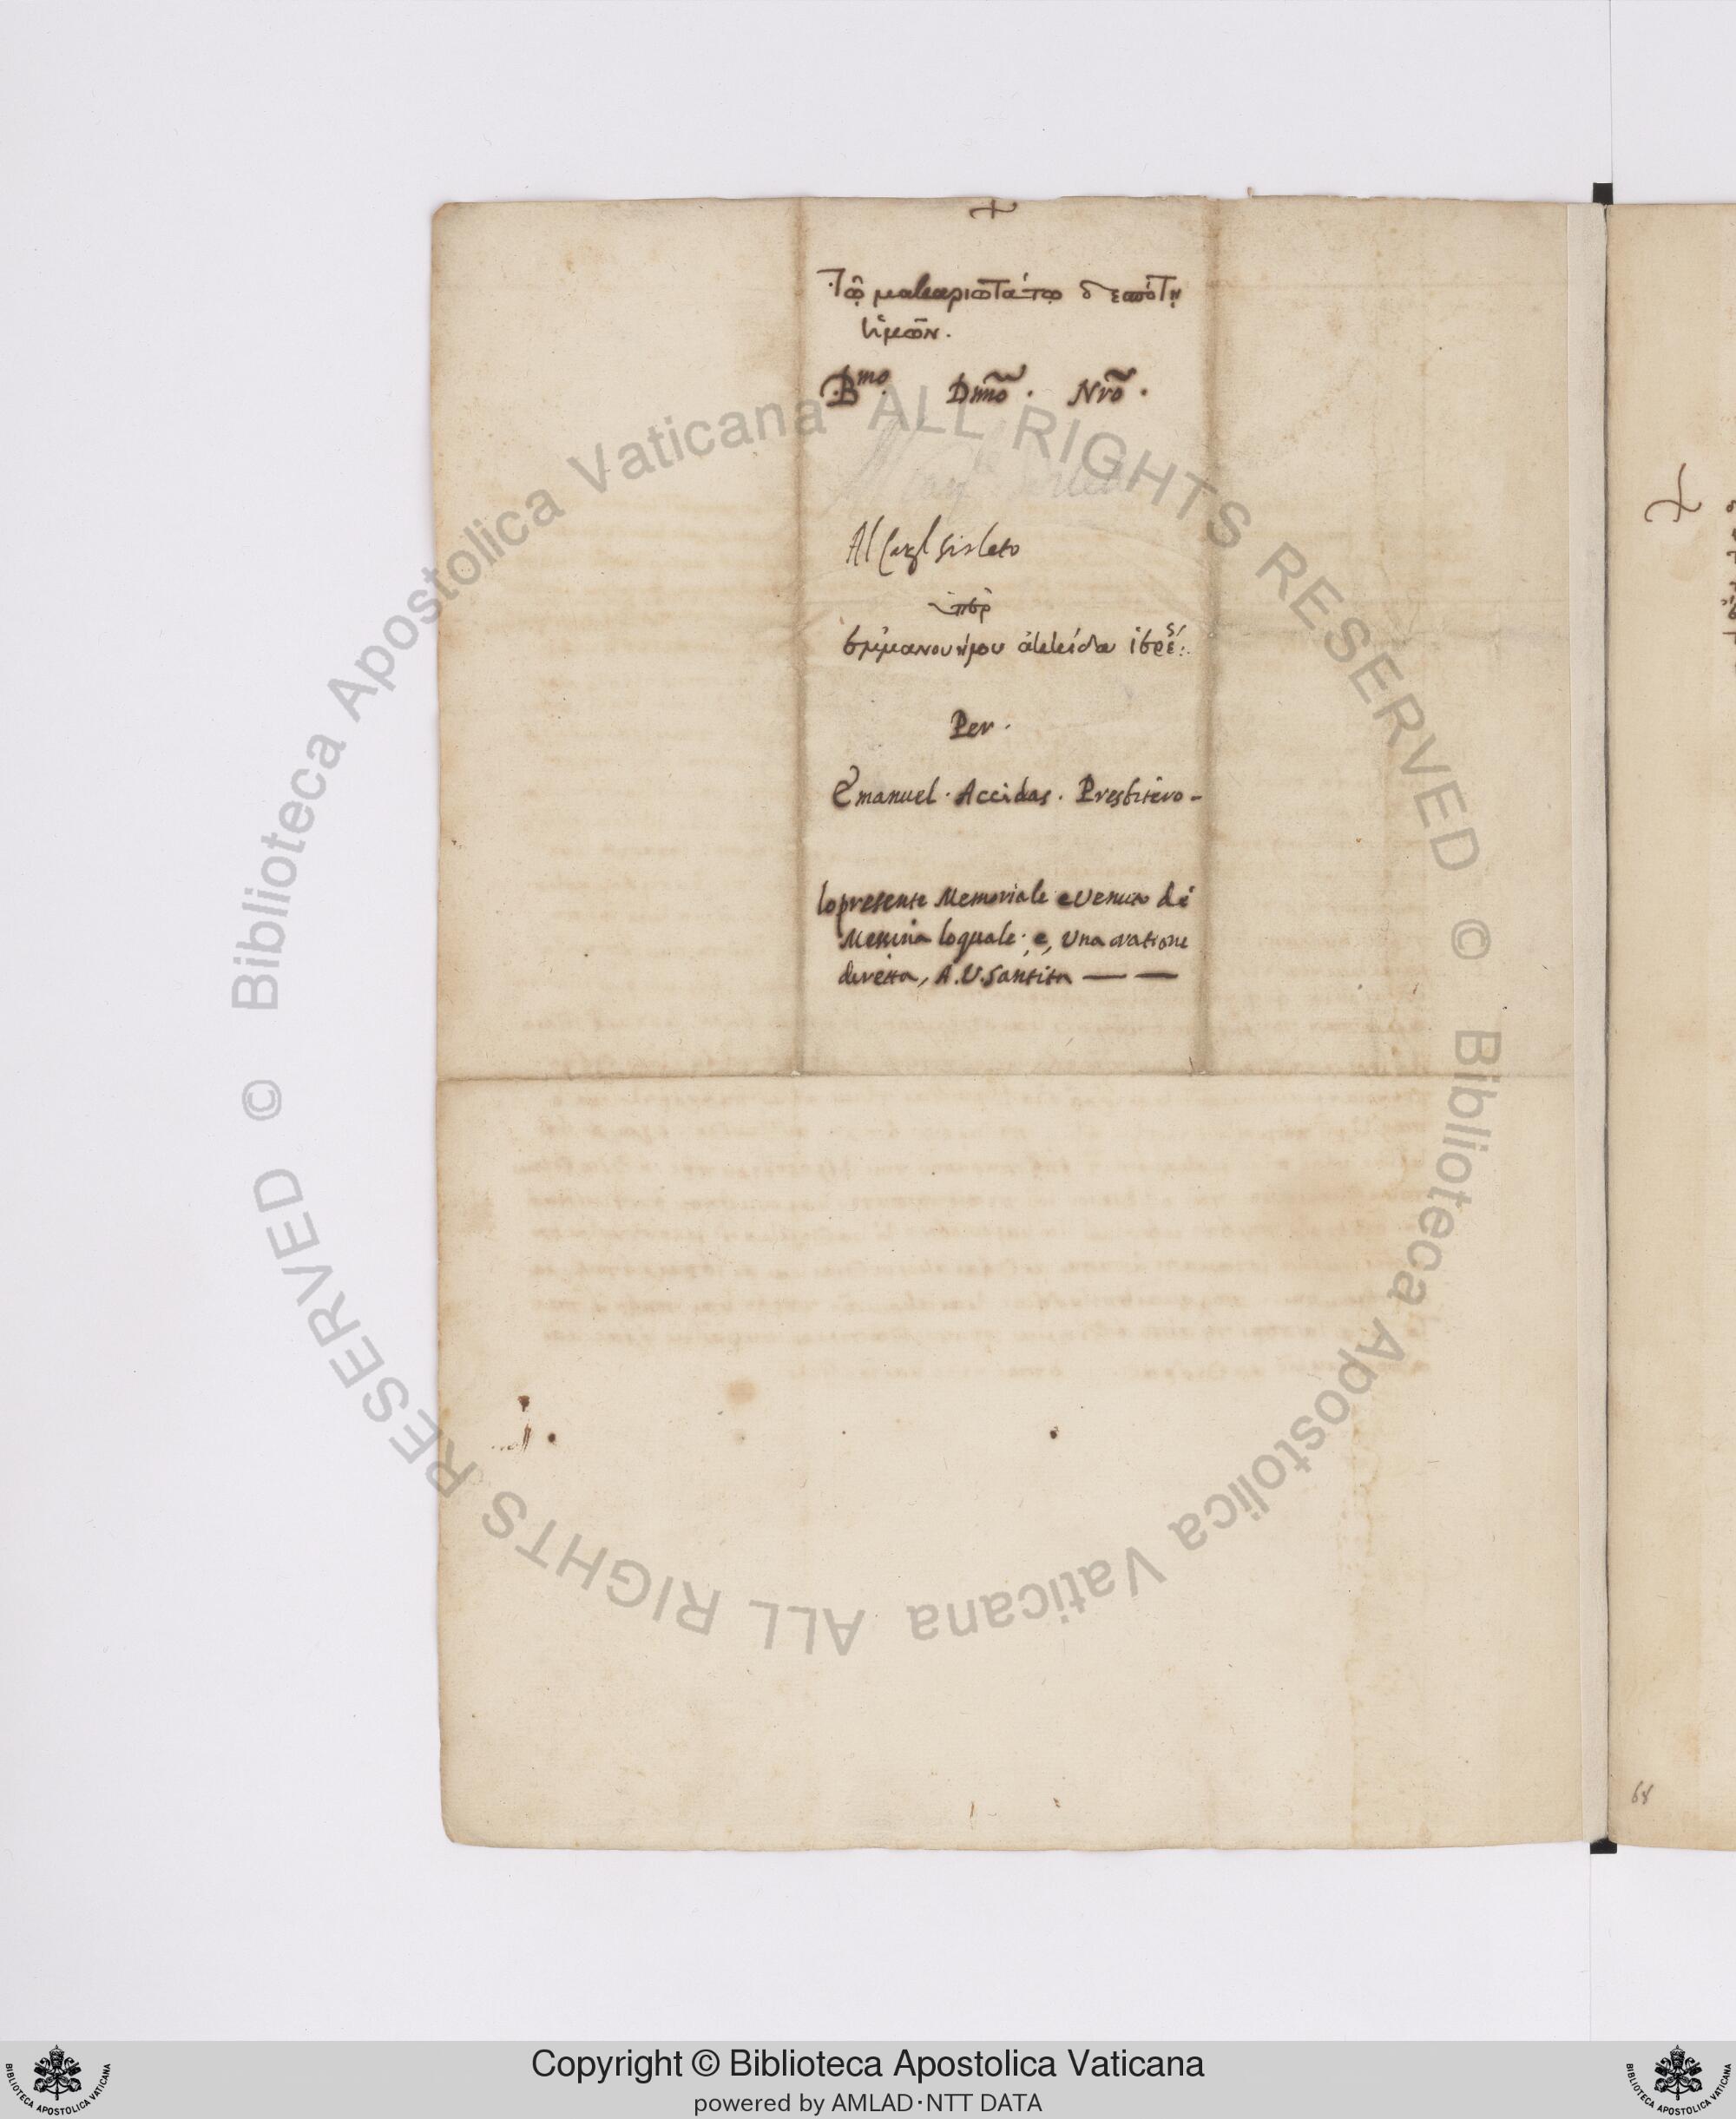 +
Τῷ μακαριωτάτῳ δεσπότῃ
ἡμῶν.
B^mo. Dm̃o. Nrõ.
Al Car^l Sirleto
ὑπὲρ
ἐμμανουήλου ἀκκίδα ἱερέ^ς:
Per.
Emanuel. Accidas. Presbitero-
lopresente Memoriale e venuto di
Messina loquale. e, Una oratione
diretta, A.V. Santita — —
+
68
© Biblioteca Apostolica Vaticana ALL RIGHTS RESERVED
© Biblioteca Apostolica Vaticana ALL RIGHTS RESERVED
Copyright © Biblioteca Apostolica Vaticana
powered by AMLAD·NTT DATA
BIBLIOTECA APOSTOLICA VATICANA
BIBLIOTECA APOSTOLICA VATICANA